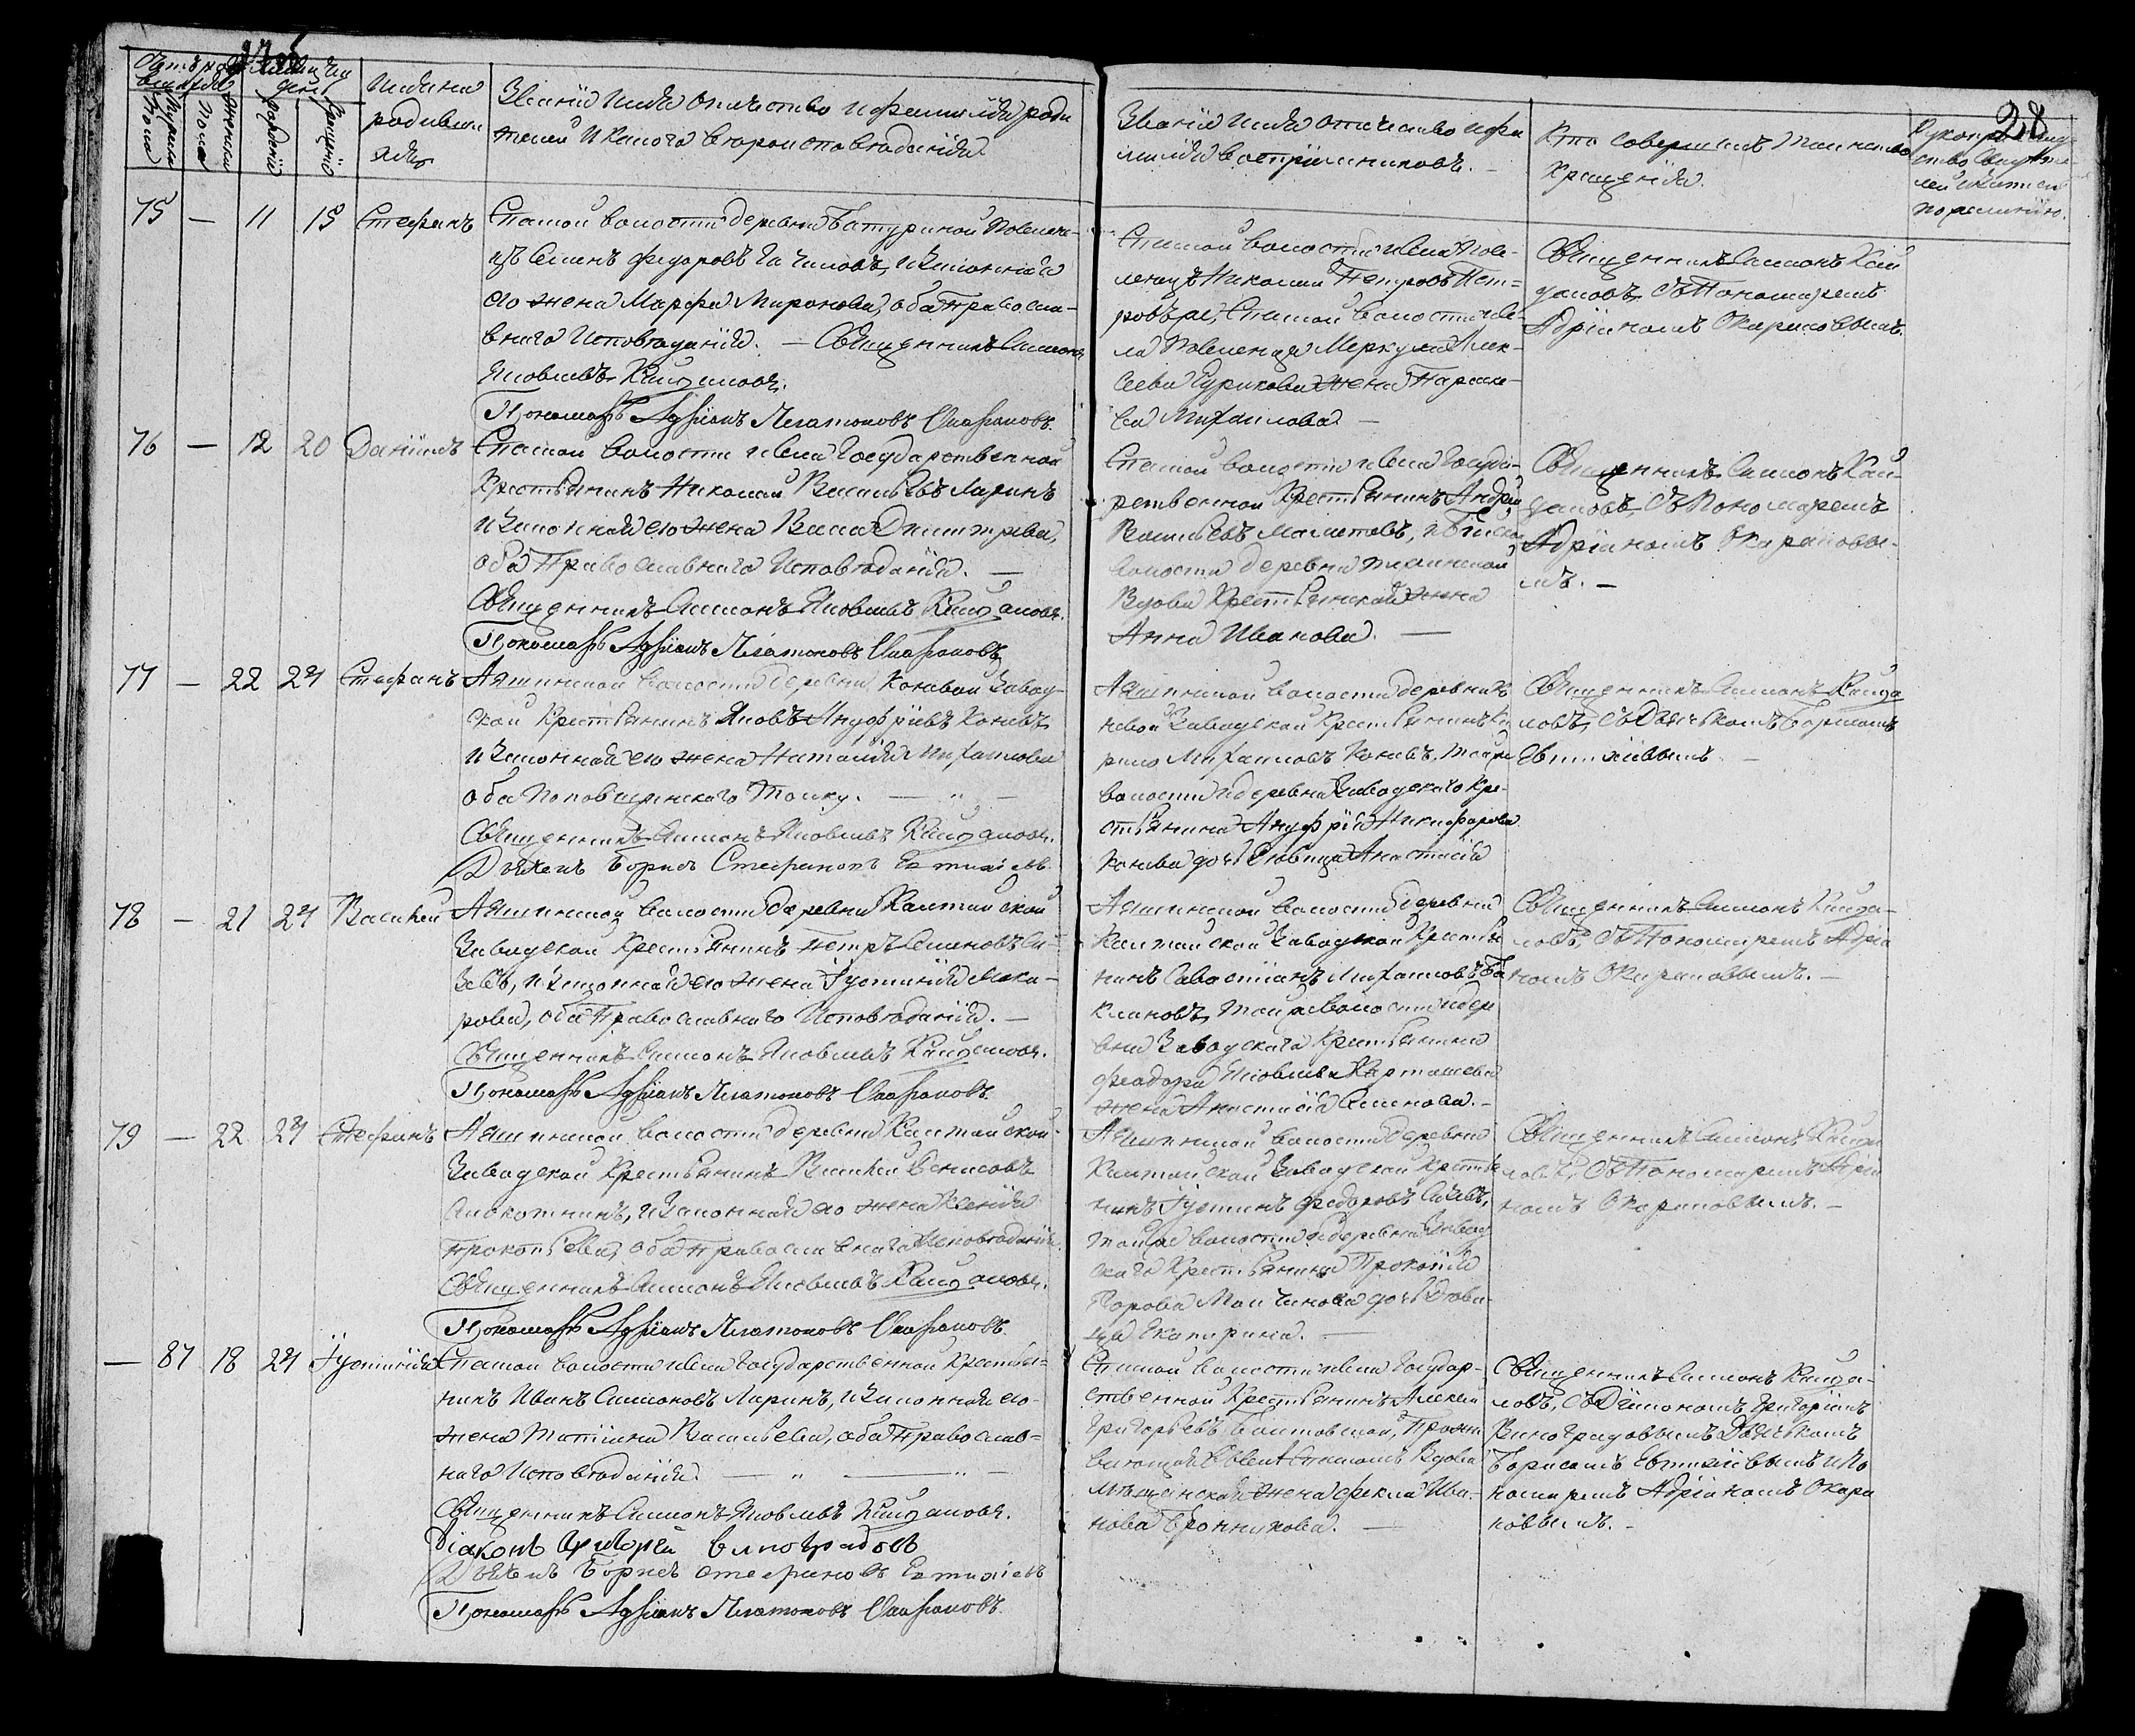 28
Счетъ родившихся
Мужеска пола
Женска пола
Мѣсяцъ и день
рожденія
крещенія
Имена родившихся
Званіе имя отчество и фамилія роди
телей и какого вѣроисповѣданія.
Званіе имя отечество и фа
милія воспріемниковъ.
Кто совершалъ таинство
крещенія.
75 — 11 15 Стефанъ
Спасской волости деревни Батуриной поселе-
нецъ Семенъ Федоровъ и законная
его жена Марфа Миронова, оба православ-
внаго исповѣданія. — Священникъ Симонъ
Яковлевъ Кайдаловъ.
Пономарь Адріанъ Платоновъ
Спасской волости и села посе-
ленецъ Николай Петровъ Пет-
ровъ же, Спасской волости и се-
ла поселенца Меркула Алек-
сеева жена Параске-
ва Михаилова —
Священникъ Симонъ Кай
даловъ, съ Пономаремъ
Адріаномъ Окараловымъ.
76 — 12 20 Даніилъ
Спасской волости и села Государственной
Крестьянинъ Николай Васильевъ Ларинъ
и законная его жена Васса Дмитріева,
оба православнаго исповѣданія. —
Священникъ Симонъ Яковлевъ Кайдаловъ.
Пономарь Адріанъ Платоновъ
Спасской волости и села Госуда-
рственной Крестьянинъ Андрей
Васильевъ
волости деревни
Вдова Крестьянская жена
Анна Иванова. —
Священникъ Симонъ Кай-
даловъ, съ Пономаремъ
Адріаномъ Окараловы-
мъ. —
77 — 22 24 Стефанъ
волости деревни Коневой Завод-
ской Крестьянинъ Яковъ Ануфріевъ Коневъ
и законная его жена Наталія Михаилова
оба Поповщинскаго Толку. — „ —
Священникъ Симонъ Яковлевъ Кайдаловъ.
Дьячекъ Борисъ Стефановъ Евтихіевъ
волости деревни Ко
невой Заводской Крестьянинъ Ки
рило Михаиловъ Коневъ, той же
волости и деревни Заводскаго Кре-
стьянина Ануфрія Никифорова
Конева дочь девица Анастасія
Священникъ Симонъ Кайда
ловъ, съ Дьячкомъ Борисомъ
Евтихіевымъ —
78 — 21 24 Василей
волости деревни Калтайской
Заводской Крестьянинъ Петръ Семеновъ
и законная его жена Іустинія Мака-
рова, оба православнаго исповѣданія. —
Священникъ Симонъ Яковлевъ Кайдаловъ.
Пономарь Адріанъ Платоновъ
волости деревни
Калтайской Заводской Крестья
нинъ Савостіанъ Михаиловъ Ба
клановъ, той же волости и дер
вни Заводскаго Крестьянина
Феодора Яковлева Карташева
жена Анастасія Семенова. —
Священникъ Симонъ Кайда-
ловъ, съ Пономаремъ Адріа
номъ Окараловымъ. —
79 — 22 24 Стефанъ
волости деревни Калтайской
Заводской Крестьянинъ Василей Денисовъ
и законная его жена Ксенія
Прокопьева, оба православнаго исповѣданія.
Священникъ Симонъ Яковлевъ Кайдаловъ.
Пономарь Адріанъ Платоновъ
волости деревни
Калтайской Заводской Крестья
нинъ Іустинъ Федоровъ
той же волости и деревни Завод
скаго Крестьянина Прокопія
дочь деви-
ца Екатерина. —
Священникъ Симонъ Кайда
ловъ, съ Пономаремъ Адріа
номъ Окараловымъ. —
— 87 18 24 Іустинія
Спасской волости и села Государственной Крестья-
нинъ Иванъ Симоновъ Ларинъ, и законная его
жена Татіана Васильева, оба православ-
наго исповѣданія. — „ — „ —
Священникъ Симонъ Яковлевъ Кайдаловъ.
Діаконъ Григорей Виноградовъ
Дьячекъ Борисъ Стефановъ Евтихіевъ
Пономарь Адріанъ Платоновъ
Спасской волости и села Государ-
ственной Крестьянинъ Алексей
Григорьевъ
въ селѣ Спасскомъ Вдова
мещанская жена Фекла Ива-
нова Бронникова. —
Священникъ Симонъ Кайда-
ловъ, съ Діакономъ Григоріемъ
Виноградовымъ Дьячкомъ
Борисомъ Евтихіевымъ и По
номаремъ Адріаномъ Окара
ловымъ. —